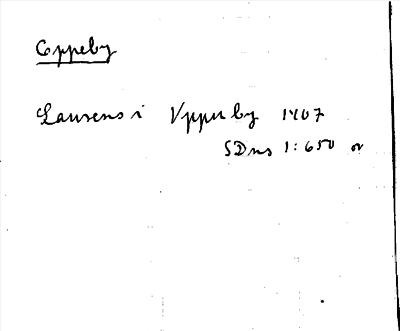 Eppeby
Laurens i Vppuby 1407
SDns 1:650 or